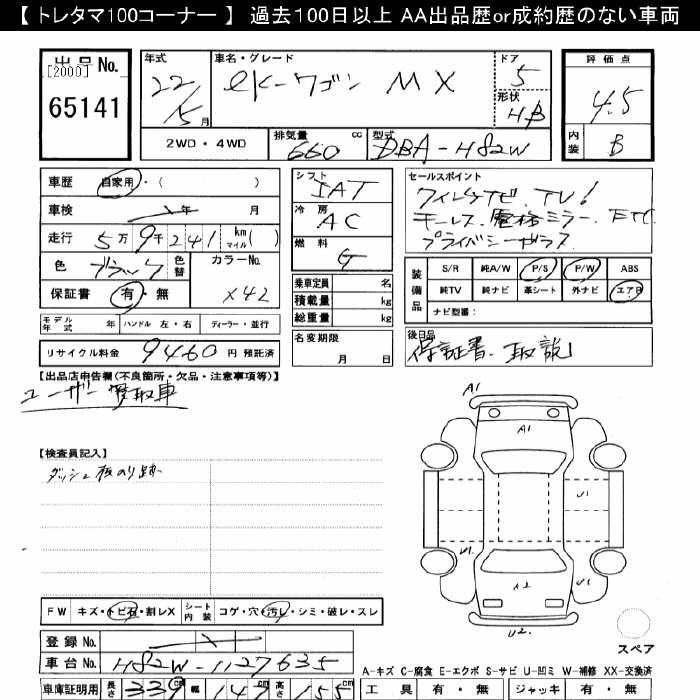 【 トレタマ100コーナー 】 過去100日以上 AA出品歴or成約歴のない車両
出品No.
[2000]
65141
年式
22/5月
車名・グレード
ekワゴン MX
ドア
5
形状
HB
評価点
4.5
内装
B
2WD・4WD
排気量
660
cc
型式
DBA-H82W
車歴
自家用・( )
車検
年 月
走行
5万9千241 km マイル( )
色
ブラック
色替
カラーNo.
X42
保証書
有・無
シフト
IAT
冷房
AC
燃料
G
乗車定員 名
積載量 kg
総重量 kg
セールスポイント
ワイヤレスナビ. TV!
キーレス. 電格ミラー. ETC
プライバシーガラス
装備品
S/R 純A/W P/S P/W ABS
純TV 純ナビ 革シート 外ナビ エアB
ナビ型番:
モデル年式 年 ハンドル 左・右 ディーラー・並行
リサイクル料金 9460 円 預託済
名変期限
月 日
後日品
保証書. 取説
【出品店申告欄(不良箇所・欠品・注意事項等)】
ユーザー買取車
【検査員記入】
ダッシュ板のり跡
A1
A1
U1
U1
A2
U2
FW キズ・トビ石・割レX シート内装 コゲ・穴・汚レ・シミ・破レ・スレ
登録No.
車台No. H82W-1127635
スペア
A-キズ C-腐食 E-エクボ S-サビ U-凹ミ W-補修 XX-交換済
車庫証明用 長さ 339cm 幅 147cm 高さ 155cm
工具 有・無 ジャッキ 有・無